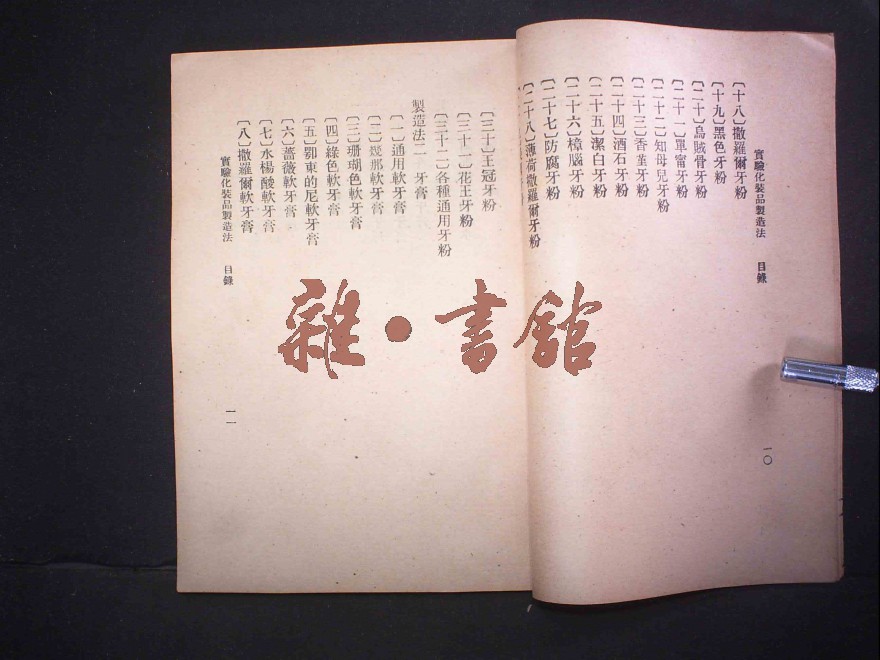 實驗化裝品製造法　目錄
一〇
〔十八〕撒羅爾牙粉
〔十九〕黑色牙粉
〔二十〕烏賊骨牙粉
〔二十一〕單甯牙粉
〔二十二〕知母兒牙粉
〔二十三〕香堇牙粉
〔二十四〕酒石牙粉
〔二十五〕潔白牙粉
〔二十六〕樟腦牙粉
〔二十七〕防腐牙粉
〔二十八〕薄荷撒羅爾牙粉
〔三十〕王冠牙粉
〔三十一〕花王牙粉
〔三十二〕各種通用牙粉
製造法二　牙膏
〔一〕通用軟牙膏
〔二〕幾那軟牙膏
〔三〕珊瑚色軟牙膏
〔四〕綠色軟牙膏
〔五〕鄂東的尼軟牙膏
〔六〕薔薇軟牙膏
〔七〕水楊酸軟牙膏
〔八〕撒羅爾軟牙膏
實驗化裝品製造法　目錄
一一
雜•書館